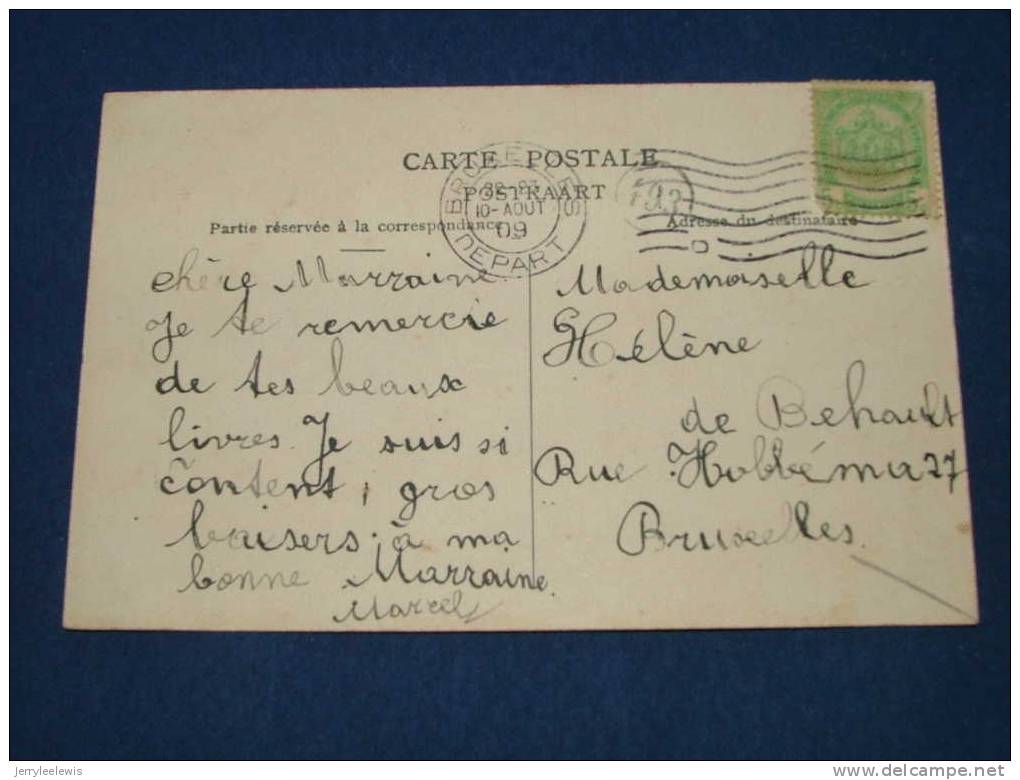 CARTE POSTALE
POSTKAART
Partie réservée à la correspondance
Adresse du destinataire
BRUXELLES
10-AOUT
09
DEPART
chère Marraine
Je te remercie
de tes beaux
livres Je suis si
content, gros
baisers à ma
bonne Marraine.
Marcel
Mademoiselle
Hélène
de Behault
Rue Hobbéma 27
Bruxelles
jerryleelewis
delcampe.net